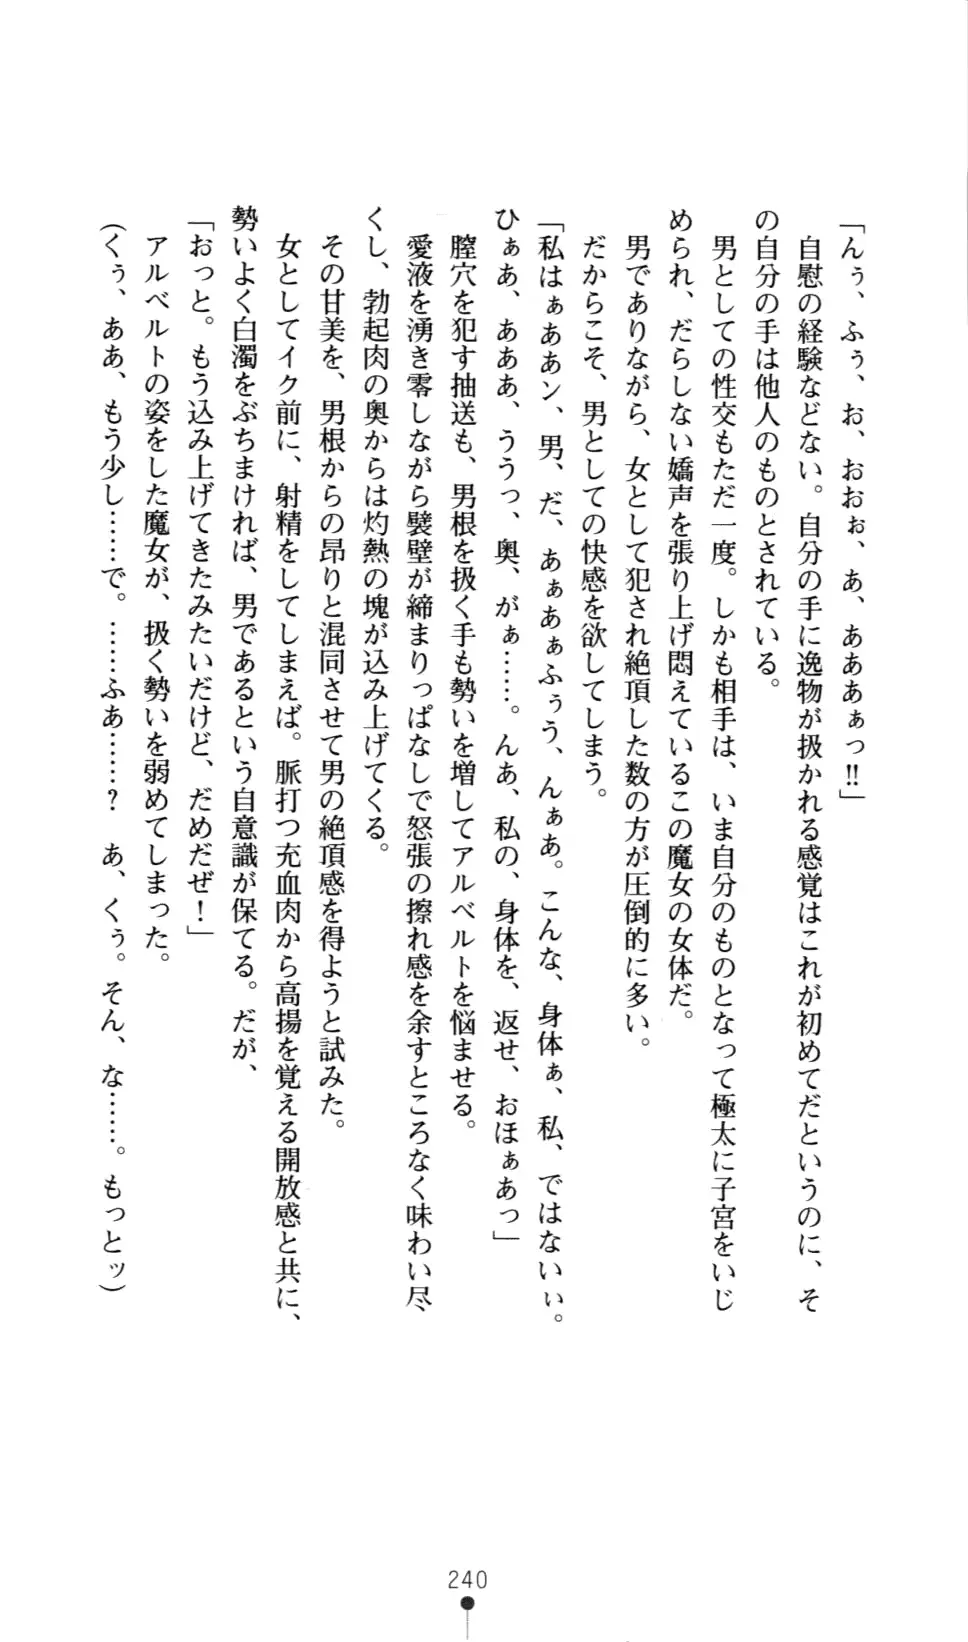 「んぅ、ふぅ、お、おおぉ、あ、あああぁっ!!」
　自慰の経験などない。自分の手に逸物が扱かれる感覚はこれが初めてだというのに、そ
の自分の手は他人のものとされている。
　男としての性交もただ一度。しかも相手は、いま自分のものとなって極太に子宮をいじ
められ、だらしない嬌声を張り上げ悶えているこの魔女の女体だ。
　男でありながら、女として犯され絶頂した数の方が圧倒的に多い。
　だからこそ、男としての快感を欲してしまう。
「私はぁああン、男、だ、あぁあぁふぅう、んぁあ。こんな、身体ぁ、私、ではないぃ。
ひぁあ、あああ、ううっ、奥、がぁ……。んあ、私の、身体を、返せ、おほぁあっ」
　膣穴を犯す抽送も、男根を扱く手も勢いを増してアルベルトを悩ませる。
　愛液を湧き零しながら襞壁が締まりっぱなしで怒張の擦れ感を余すところなく味わい尽
くし、勃起肉の奥からは灼熱の塊が込み上げてくる。
　その甘美を、男根からの昂りと混同させて男の絶頂感を得ようと試みた。
　女としてイク前に、射精をしてしまえば。脈打つ充血肉から高揚を覚える開放感と共に、
勢いよく白濁をぶちまければ、男であるという自意識が保てる。だが、
「おっと。もう込み上げてきたみたいだけど、だめだぜ！」
　アルベルトの姿をした魔女が、扱く勢いを弱めてしまった。
（くぅ、ああ、もう少し……で。……ふあ……？　あ、くぅ。そん、な……。もっとッ）
240